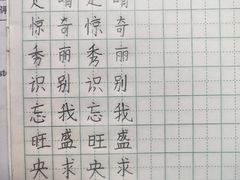 惊奇惊奇
秀丽秀丽
识别识别
忘我忘我
旺盛旺盛
央求央求